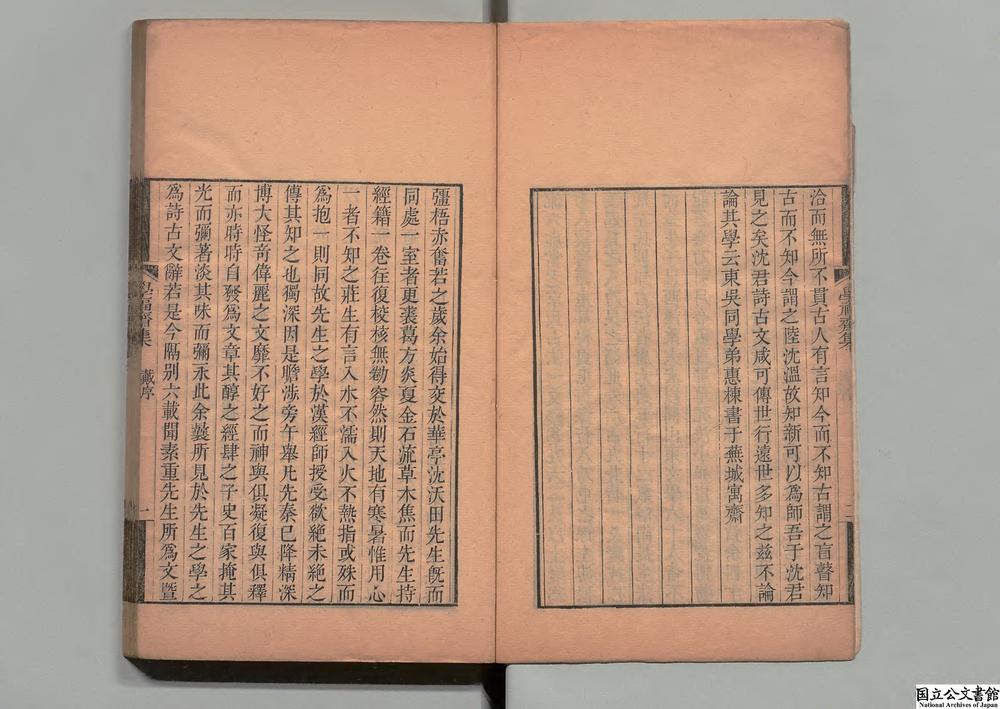 洽而無所不貫古人有言知今而不知古謂之盲瞽知
古而不知今謂之陸沈溫故知新可以爲師吾于沈君
見之矣沈君詩古文咸可傳世行遠世多知之兹不論
論其學云東吳同學弟惠棟書于蕪城寓齋
學福齋集
二
彊梧赤奮若之歲余始得交於華亭沈沃田先生旣而
同處一室者更裘葛方炎夏金石流草木焦而先生持
經籍一卷往復梭核無勌容然則天地有寒暑惟用心
一者不知之莊生有言入水不濡入火不熱指或殊而
爲抱一則同故先生之學於漢經師授受欲絕未絕之
傳其知之也獨深因是贍涉旁午舉凡先秦已降精深
博大怪奇偉麗之文靡不好之而神與俱凝復與俱釋
而亦時時自發爲文章其醇之經肆之子史百家掩其
光而彌著淡其味而彌永此余曩所見於先生之學之
爲詩古文辭若是今隔别六載聞素重先生所爲文暨
學福齋集
戴序
一
国立公文書館
National Archives of Japan